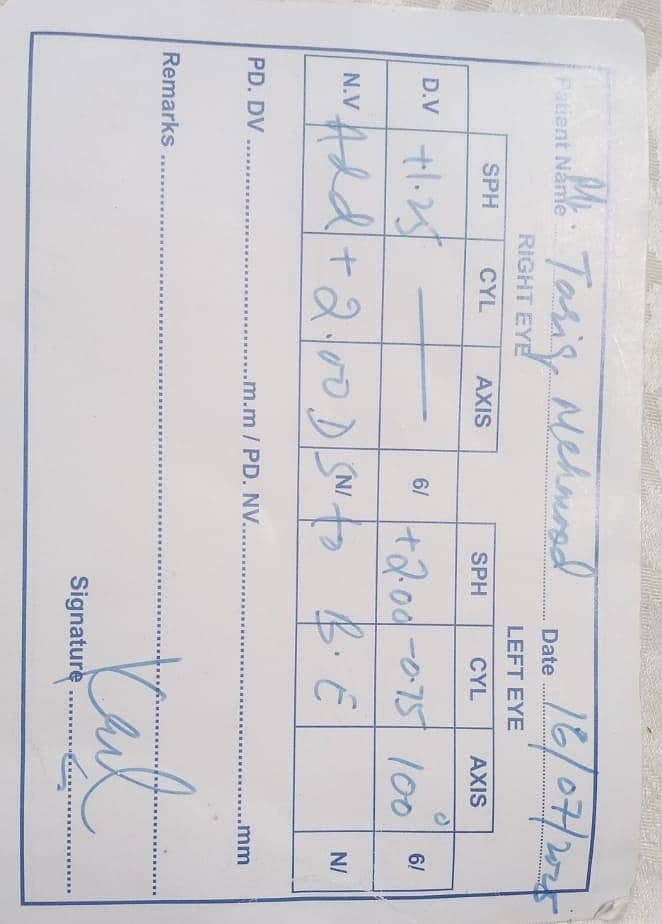 Patient Name Mr. Tariq Mehmood Date 16/07/2025
RIGHT EYE LEFT EYE
SPH CYL AXIS SPH CYL AXIS
D.V +1.25 — 6/ +2.00 -0.75 100° 6/
N.V Add +2.00 DS N/ to B.E N/
PD. DV ........ m.m / PD. NV ........ mm
Remarks ........
Signature ........